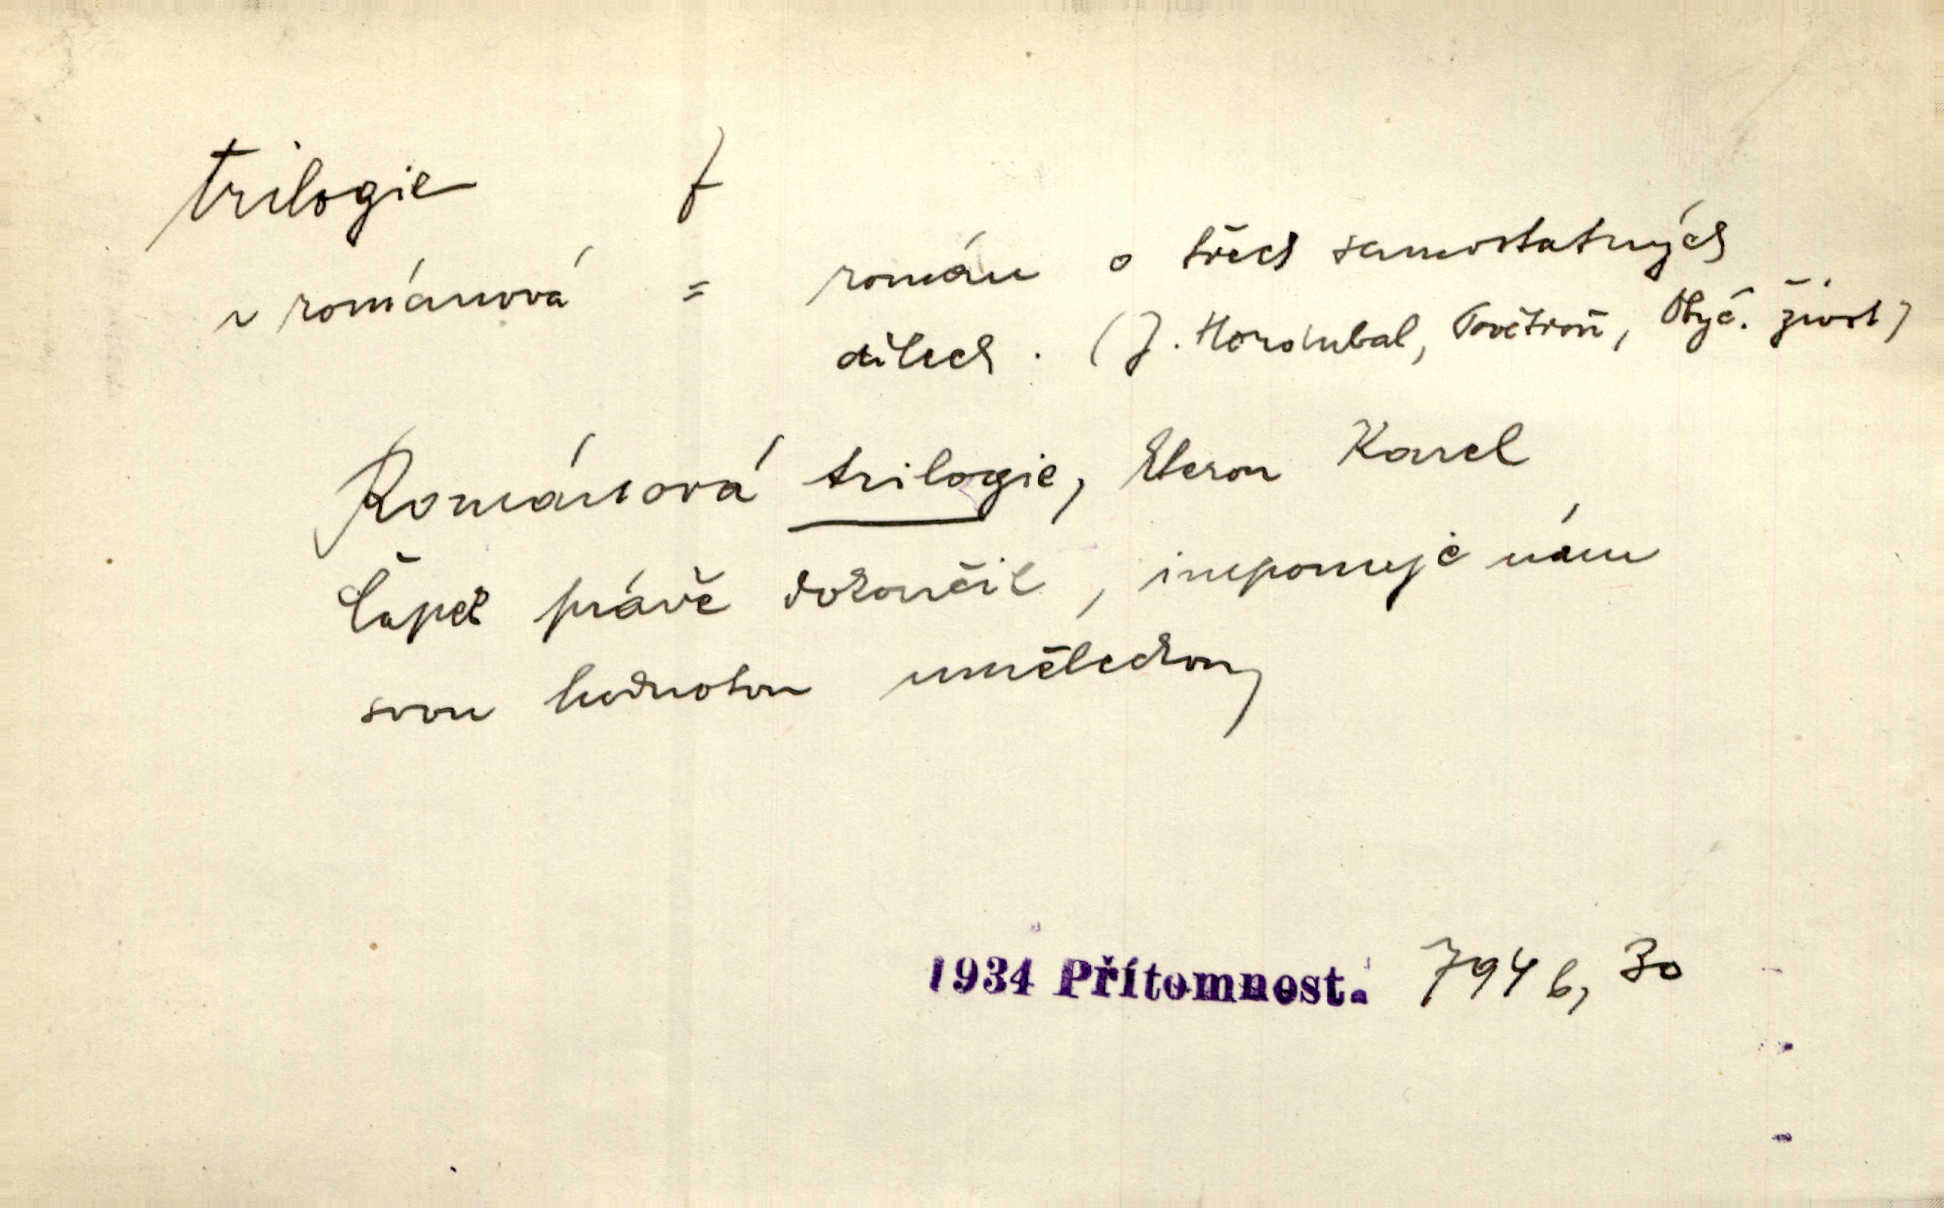 trilogie f
~ románová = román o třech samostatných
dílech. (J. Hordubal, Povětroň, Obyč. život)
Románová trilogie, kterou Karel
Čapek právě dokončil, imponuje nám
svou hodnotou uměleckou,
1934 Přítomnost. 794 b, 30